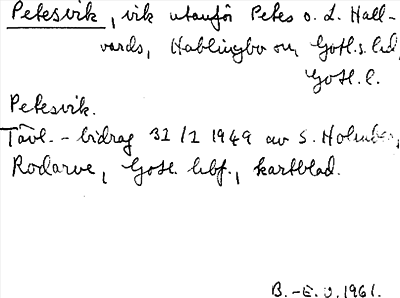 Petesvik, vik utanför Petes o. L. Hall-
vards, Hablingbo sn, Gotl. s. hd,
Gotl. l.
Petesvik.
Tävl. - bidrag 31/1 1949 av S. Holmbe
Rodarve, Gotl. hbf., kartblad.
B.-E. J. 1961.